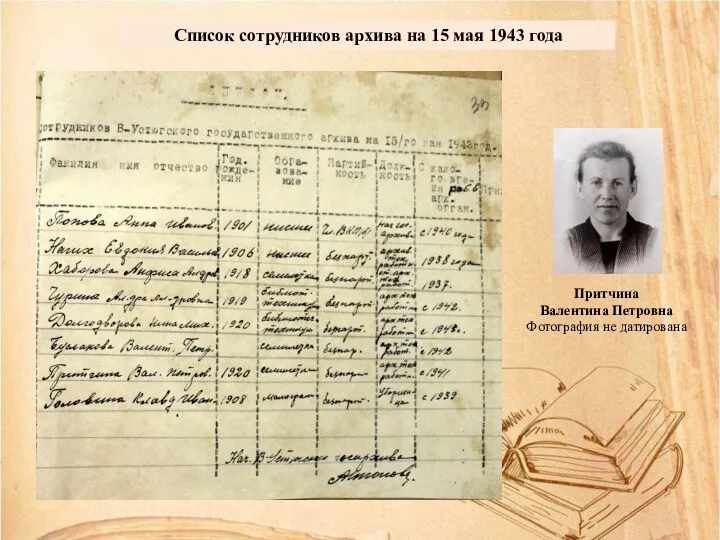 Список сотрудников архива на 15 мая 1943 года
СПИСОК.
сотрудников В-Устюгского государственного архива на 15/го мая 1943год.
Фамилия имя отчество Год. рожде- ния Обра- зова- ние Партий- ность Долж- ность С како- го вре- мя раб. в арх. орган.
Попова Анна Иванов. 1901 низшее Чл. ВКП/б/ нач гос. архива с 1940 год
Нагих Евдокия Василь. 1906 низшее безпарт. архив. тех. работн. 1938 года
Хабарова Анфиса Андр. 1918 семилетка безпарт. ст. арх тех работ. 1937.
Чурина Ал-дра Ал-дровна 1919 библиот. техникум безпарт. арх тех работн. с 1942.
Долгодворова Нина Мих. 1920 библиотеч. техникум безпарт. арх тех работн.
Булакова Валент. Петр. семилетка безпар. арх. тех работ. с 1942
Притчина Вал. Петров. 1920 семилетка безпарт. арх тех работн. с 1941
Головина Клавд Иван. 1908 малограм. безпарт. Уборщи- ца с 1939
Нач. В-Устюгского госархива
Притчина
Валентина Петровна
Фотография не датирована